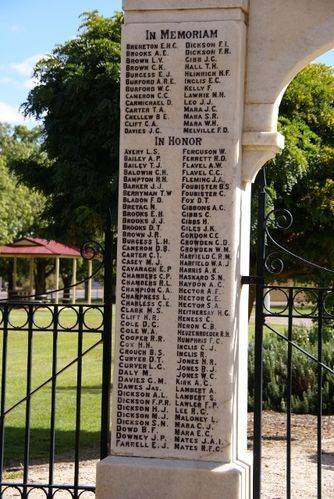 IN MEMORIAM
BRERETON E.H.C.
BROOKS A.E.
BROWN L.V.
BROWN C.H.
BURGESS E.J.
BURFORD A.R.E.
BURFORD W.C.
CAMERON C.C.
CARMICHAEL D.
CARTER T.A.
CHELLEW B.E.
CLIFT C.A.
DAVIES J.C.
DICKSON F.I.
DICKSON F.R.
GIBB J.C.
HALL T.H.
HEINRICH H.F.
INGLIS E.C.
KELLY F.
LAWRIE N.H.
LEO J.J.
MARA J.C.
MARA S.R.
MARA W.H.
MELVILLE F.D.
IN HONOR
AVERY L.S.
BAILEY A.P.
BAILEY T.J.
BALDWIN C.H.
BAMPTON H.H.
BARKER J.J.
BERRYMAN T.W.
BLADON F.D.
BRETAG N.
BROOKS E.H.
BROOKS J.J.
BROOKS D.T.
BROWN J.R.
BURGESS L.H.
CAMERON D.B.
CARTER C.I.
CASEY M.J.
CAVANAGH E.P.
CHAMBERS C.P.
CHAMBERS R.L.
CHAMPION C.A.
CHAMPNESS L.
CHARLESS C.E.
CLARK M.S.
CLIFT H.R.
COLE D.C.
COLE W.A.
COOPER R.R.
COX H.H.
CROUCH B.S.
CURVER D.T.
CURVER L.G.
DALY M.
DAVIES G.M.
DAWES JAS.
DICKSON A.L.
DICKSON F.P.R.
DICKSON H.J.
DICKSON M.J.
DICKSON S.N.
DOWD B.F.
DOWNEY J.P.
FARRELL E.J.
FERGUSON W.
FERRETT R.D.
FLAVEL A.W.
FLAVEL C.C.
FLEMING J.A.
FOUBISTER B.S.
FOUBISTER C.
FOX D.T.
GIBBONS A.C.
GIBBS C.
GIBBS H.
GILES J.K.
GORDON C.C.
CROWDEN C.D.
CROWDEN W.M.
HARFIELD C.R.M.
HARFIELD W.A.J.
HARRIS A.K.
HASKARD S.N.
HAYDON A.C.
HECTOR A.F.
HECTOR C.E.
HECTOR S.A.
HERITAGE H.G.
HERNESS C.
HERON C.B.
HUMPHRIS F.C.
INGLIS C.J.
INGLIS R.
JONES H.R.
JONES B.J.
JONES W.C.
KIRK A.C.
LAMBERT A.
LAMBERT S.
LAWLER F.P.
LEE R.G.
MALONEY L.
MARA C.J.
MARA E.C.
MATES J.A.I.
MATES R.F.C.